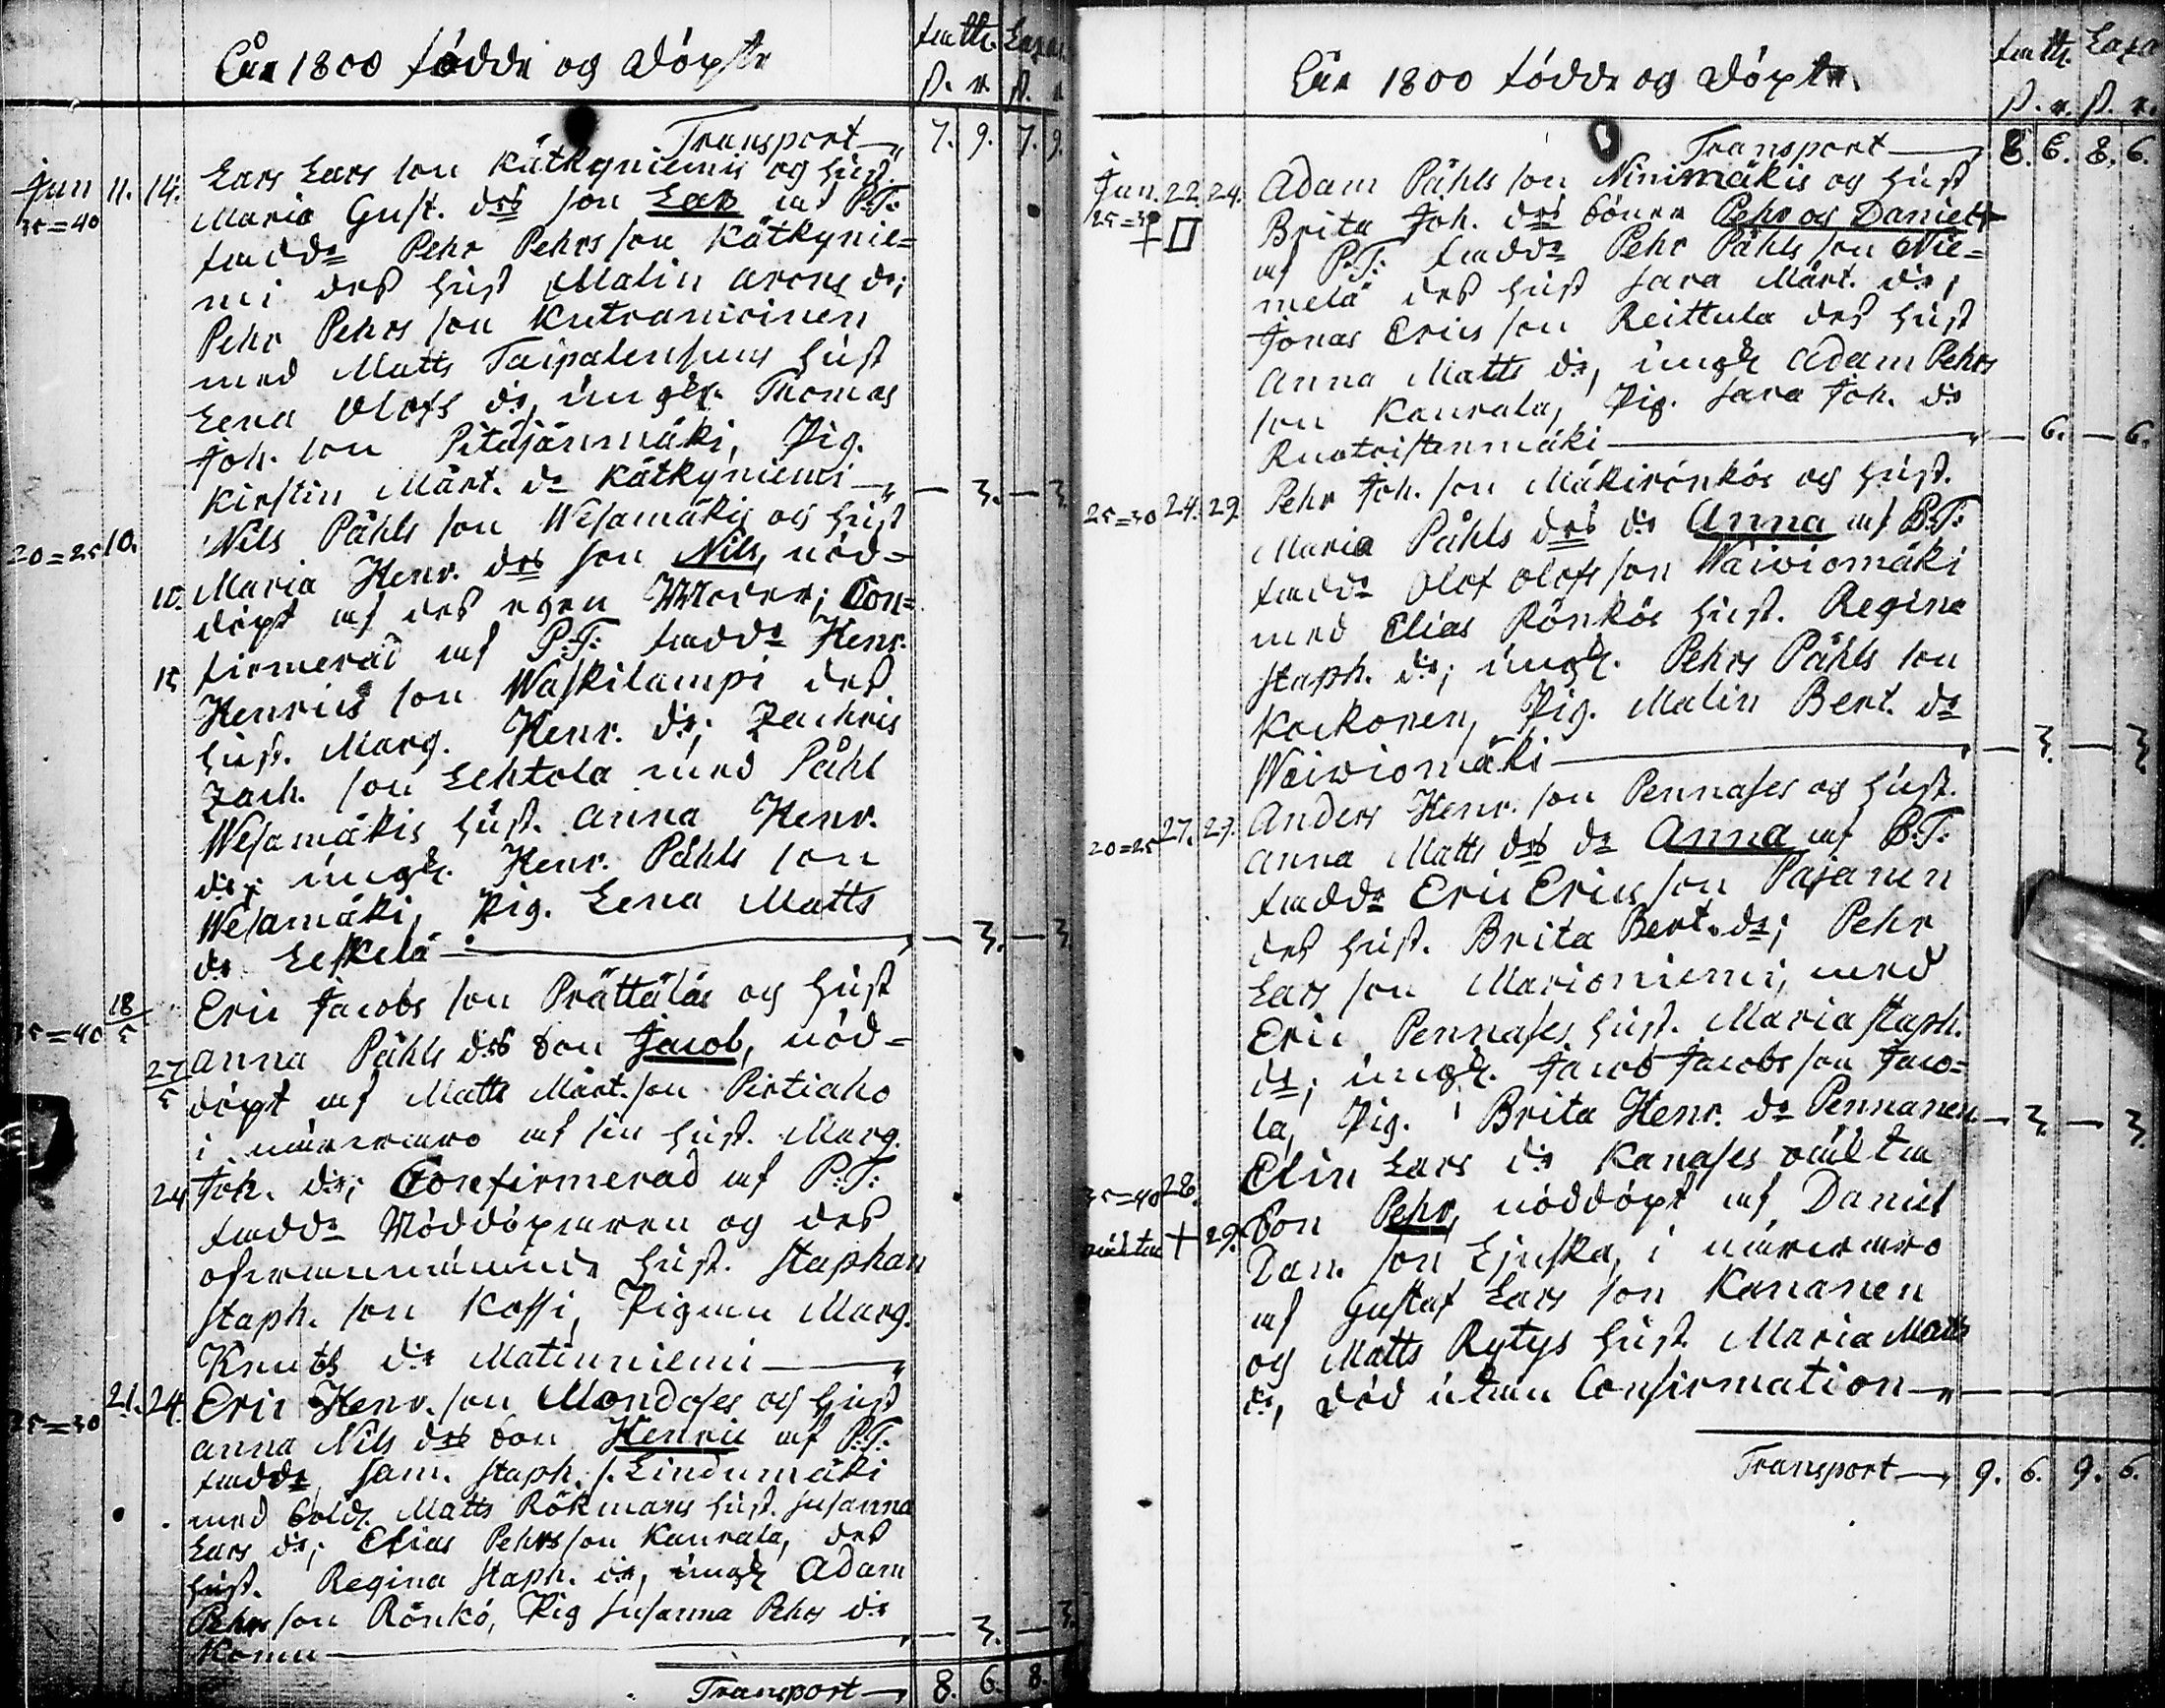 Åhr 1800 födde og döpte
fatti. Laza.
ß. r. ß. r.
Transport — 7. 9. 7. 9.
Jun 11. 14. Lars Lars son Kätkyniemis og hust.
35=40 Maria Gust. drs son Lars af P.T.
fadd. Pehr Pehrs son Kätkynie=
mi des hust Malin Arons dr;
Pehr Pehrs son Kutramoinen
med Matts Taipalensuus hust
Lena Olofs dr, ungk. Thomas
Joh. son Pitäjänmäki, Pig.
Kirstin Märt. dr Kätkyniemi — 3. — 3.
20=25 10. Nils Påhls son Wesamäkis og hust
Maria Henr. drs son Nils, nöd=
10. döpt af des egen Moder; Con=
15 firmerad af P.T. fadd. Henr.
Henrics son Waskilampi des
hust. Marg. Henr. dr; Zachris
Zach. son Lehtola med Påhl
Wesamäkis hust. Anna Henr.
dr; ungk. Henr. Påhls son
Wesamäki, Pig. Lena Matts
dr Leskelä — 3. — 3.
18/5 Eric Jacobs son Prättäläs og hust
35=40 Anna Påhls drs son Jacob, nöd=
27/5 döpt af Matts Märt. son Pirtiaho
i närwaro af sin hust. Marg.
24 Joh. dr; Confirmerad af P.T.
fadd. Nöddöparen og des
ofwannämnde hust. Staphan
Staph. son Kossi, Pigan Marg.
Knuts dr Matinniemi —
21. 24. Eric Henr. son Mondases og hust
25=30 Anna Nils drs son Henric af P.T.
fadd. Sam. Staph. s. Lindumäki
med Sold. Matts Rökmans hust. Susanna
Lars dr; Elias Pehrs son Kaurala, des
hust. Regina Staph. dr, ungk Adam
Pehrs son Rönkö, Pig Susanna Pehrs dr
Komu — 3. — 3.
Transport — 8. 6. 8.
Åhr 1800 födde og döpte.
fatti. Laza
ß. r. ß. r.
Transport — 8. 6. 8. 6.
Jun. 22. 24. Adam Påhls son Niinimäkis og hust
25=30 Brita Joh. drs söner Pehr og Daniel
af P.T. fadd. Pehr Påhls son Nie=
melä des hust Sara Märt. dr;
Jonas Erics son Reittula des hust
Anna Matts dr, ungk Adam Pehrs
son Kaurala, Pig. Sara Joh. dr
Ruotoistenmäki — 6. — 6.
25=30 24. 29. Pehr Joh. son Mäkirönkös og hust.
Maria Påhls drs dr Anna af P.T.
fadd. Olof Olofs son Waiwiomäki
med Elias Rönkös hust. Regina
Staph. dr; ungk. Pehrs Påhls son
Korkonen, Pig. Malin Bert. dr
Waiwiomäki — 3. — 3.
20=25 27. 29. Anders Henr. son Pennases og hust.
Anna Matts drs dr Anna af P.T.
fadd. Eric Erics son Pajanen
des hust. Brita Bert. dr; Pehr
Lars son Marioniemi, med
Eric Pennases hust. Maria Staph.
dr; ungk. Jacob Jacobs son Jaco=
la, Pig. Brita Henr. dr Pennanen — 3. — 3.
35=40 28. Elin Lars dr Kanases oäkta
oäkta + 29. Son Pehr, nöddöpt af Daniel
Dan. son Ljuska, i närwaro
af Gustaf Lars son Kananen
og Matts Rytys hust Maria Matts
dr, död utan Confirmation —
Transport — 9. 6. 9. 6.